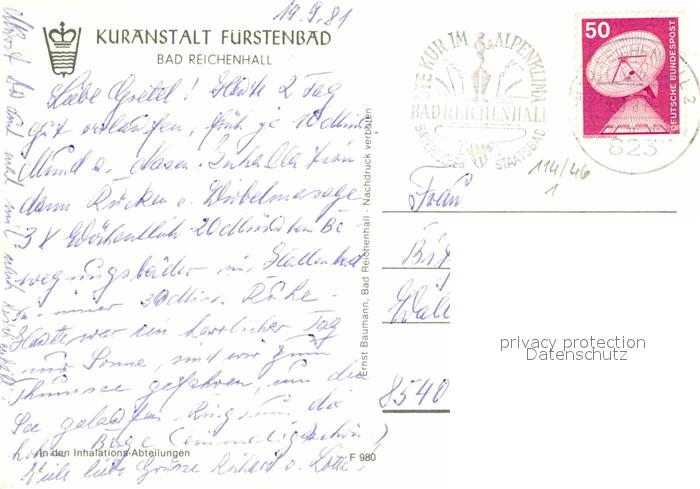 19.9.81
KURANSTALT FÜRSTENBAD
BAD REICHENHALL
Liebe Gretel! Heute 2 Tag
gut verlaufen, früh je 10 Minut
Mund u. Nasen Inhallation
dann Rücken u. Wirbelmassage
3 x Wöchentlich 20 Minuten Be-
wegungsbäder im Hallenbad
immer 30 Min. Ruhe.
Heute war ein herrlicher Tag
nur Sonne, sind wir zum
Thumsee gefahren, um die
See gelaufen. Ringsum die
hohen Berge (einmalig schön)
Viele liebe Grüsse Richard u. Lotte!
An den Inhalations-Abteilungen
F 980
Ernst Baumann, Bad Reichenhall - Nachdruck verboten
DIE KUR IM ALPENKLIMA
BAD REICHENHALL
BAYERISCHES STAATSBAD
50
DEUTSCHE BUNDESPOST
823
114/46
1
Frau
8540
privacy protection
Datenschutz